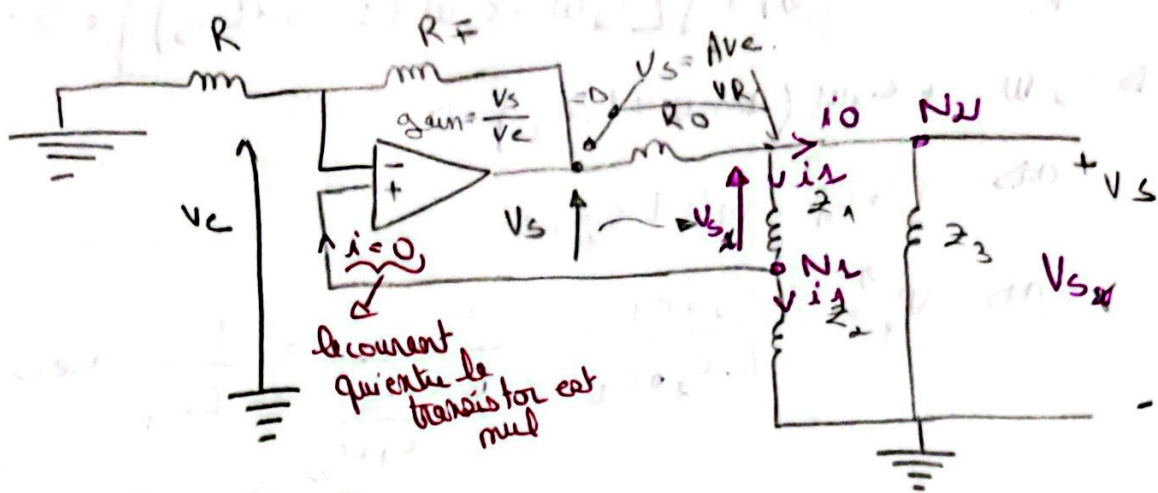 R
RF
gain = Vs/Vc
Vs = AVc
VR
R0
i0
N2
+
Vs
i1
Z1
−
+
Vc
Vs
i=0
N1
i1
Z2
Z3
le courant
qui entre le
transistor est
nul
-